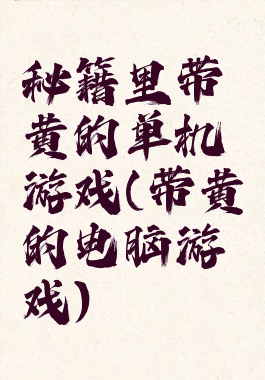 秘籍里带
黄的单机
游戏(带黄
的电脑游
戏)